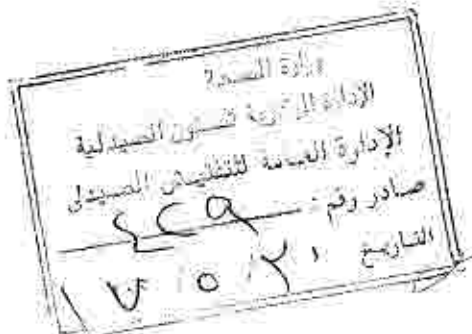 وزارة الصحة
الإدارة المركزية للشئون الصيدلية
الإدارة العامة للتفتيش الصيدلى
صادر رقم : ٤٢٩
التاريخ ٢٠ / ٥ / ١٧